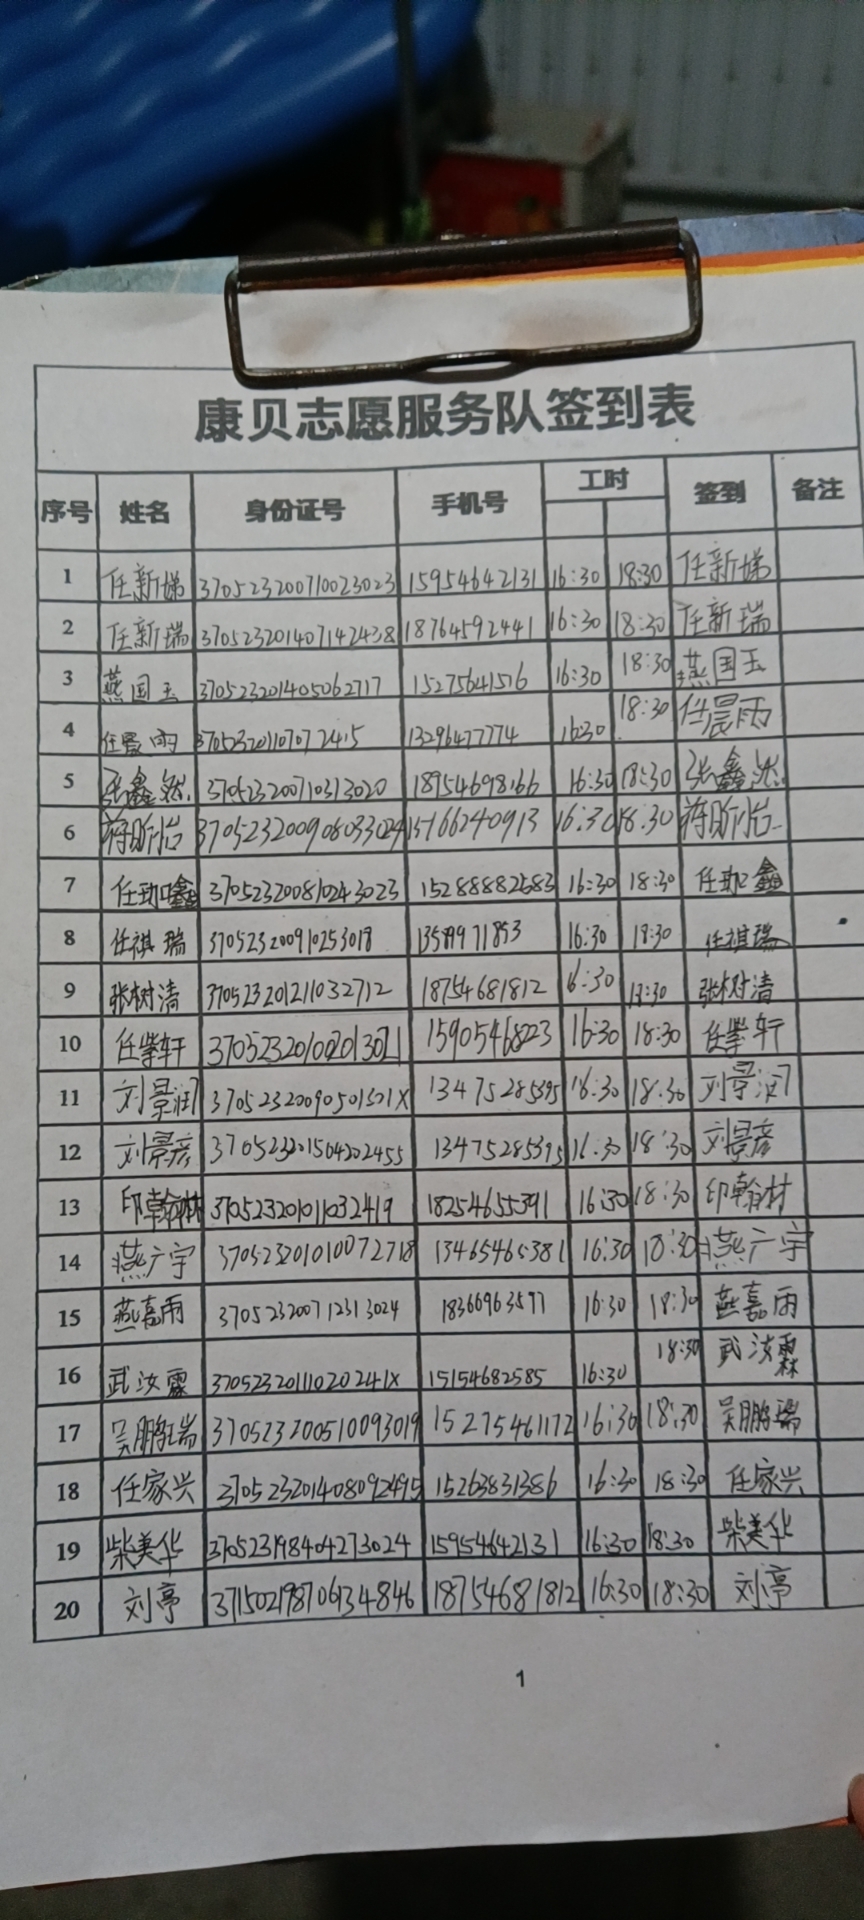 康贝志愿服务队签到表
序号 姓名 身份证号 手机号 工时 签到 备注
1 任新娣 370523200710023023 15954642131 16:30 18:30 任新娣
2 任新瑞 370523201407142438 18764592441 16:30 18:30 任新瑞
3 燕国玉 370523201405062717 15275641516 16:30 18:30 燕国玉
4 任晨雨 13296477774 16:30 18:30 任晨雨
5 张鑫然 370523200710313020 18954698166 16:30 18:30 张鑫然
6 蒋昕怡 15166240913 16:30 18:30 蒋昕怡
7 370523200810243023 15288882583 16:30 18:30
8 任祺瑞 370523200910253018 16:30 18:30 任祺瑞
9 张树清 370523201211032712 18754681812 16:30 18:30 张树清
10 16:30 18:30
11 刘景润 13475285395 16:30 18:30 刘景润
12 刘景彦 370523201504202455 13475285395 16:30 18:30 刘景彦
13 印翰林 370523201011032419 18254655391 16:30 18:30 印翰林
14 燕广宇 370523201010072718 13465465381 16:30 18:30 燕广宇
15 燕嘉雨 370523200712313024 16:30 18:30 燕嘉雨
16 武汝霖 37052320111020241X 15154682585 16:30 18:30 武汝霖
17 吴鹏瑞 370523200510093019 15275461172 16:30 18:30 吴鹏瑞
18 任家兴 370523201408092495 15263831386 16:30 18:30 任家兴
19 柴美华 370523198404273024 15954642131 16:30 18:30 柴美华
20 刘亭 18754681812 16:30 18:30 刘亭
1